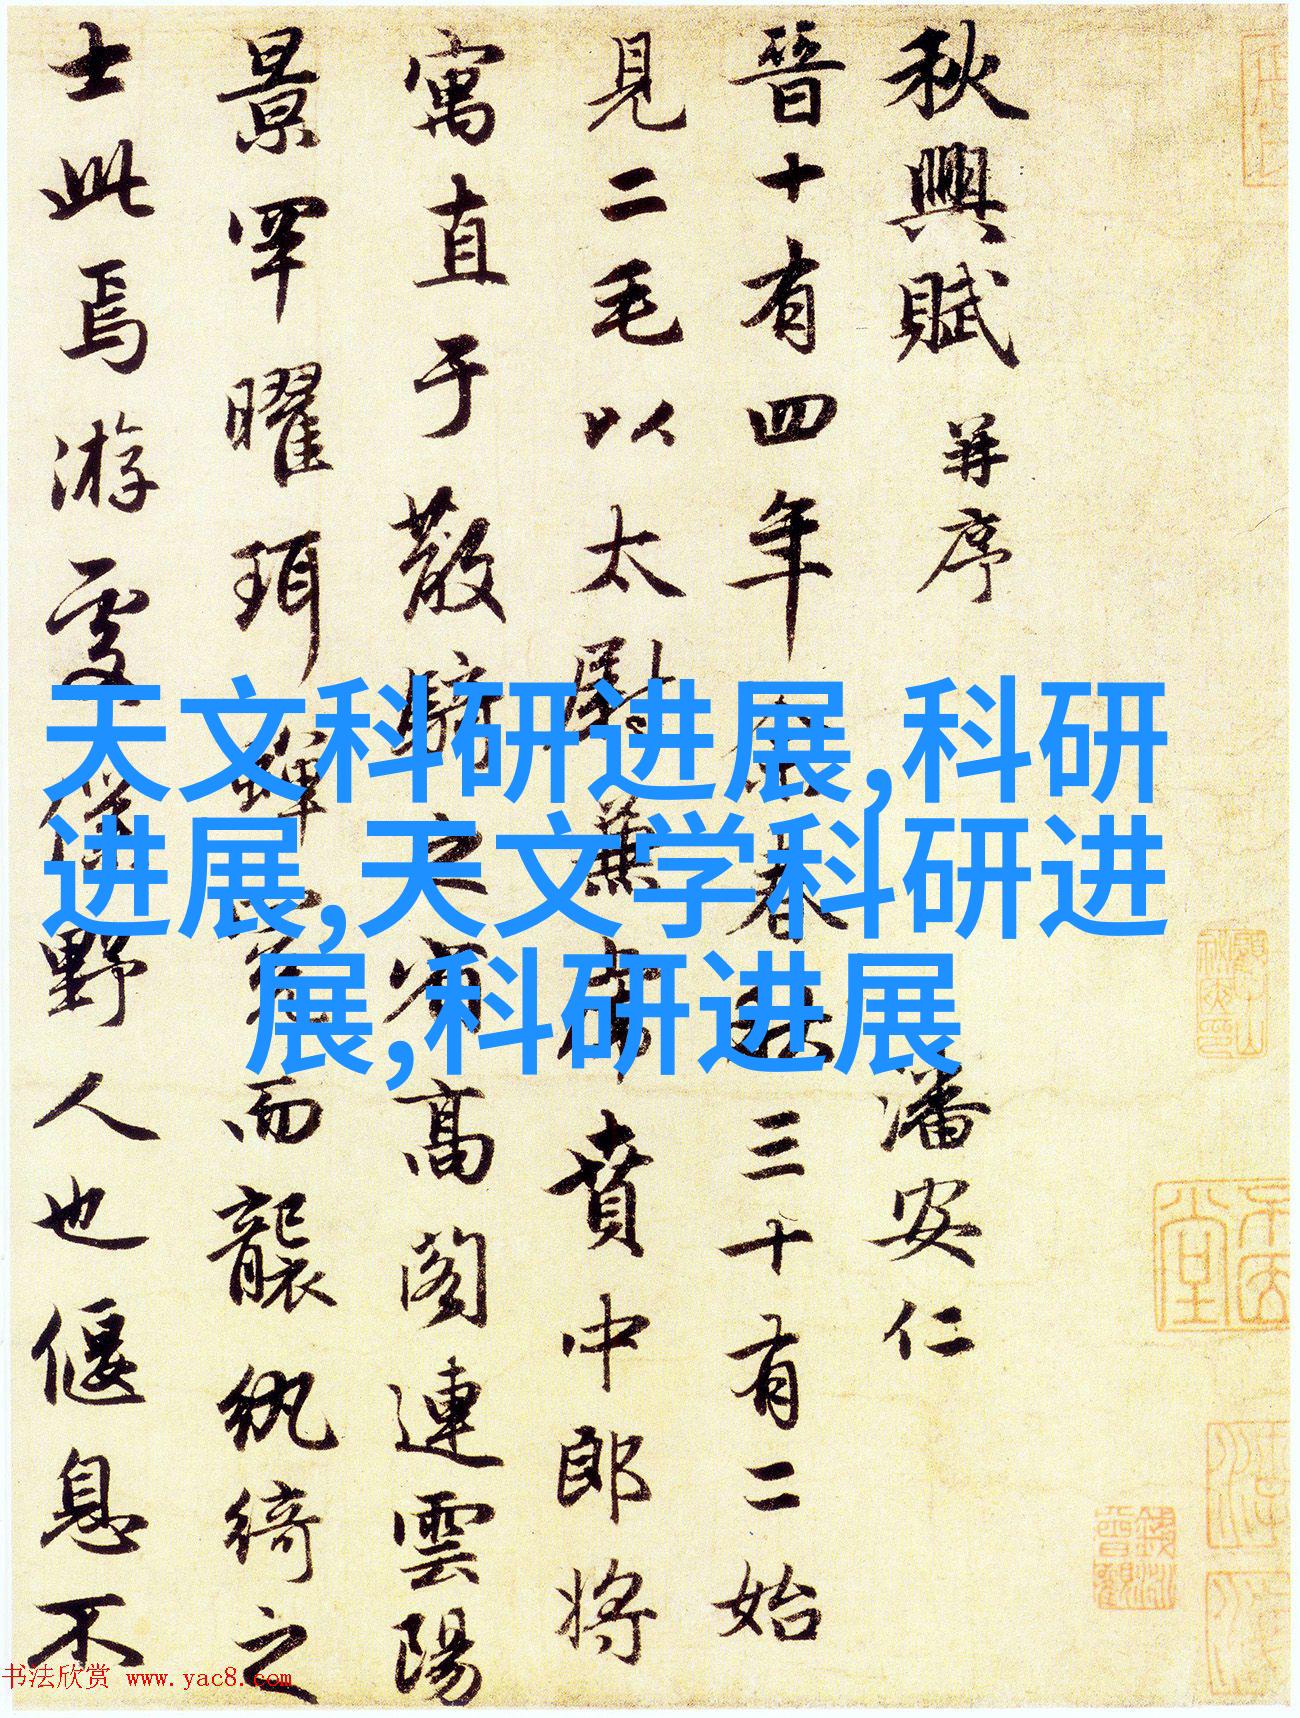 秋興賦 并序 潘安仁
晉十有四年余春秋三十有二始
見二毛以太尉兼虎賁中郎将
寓直于散騎之省高閣連雲陽
景罕曜珥蟬冕而襲紈綺之
士此焉游處僕野人也偃息不
天文科研进展,科研
进展,天文学科研进
展,科研进展
书法欣赏 www.yac8.com